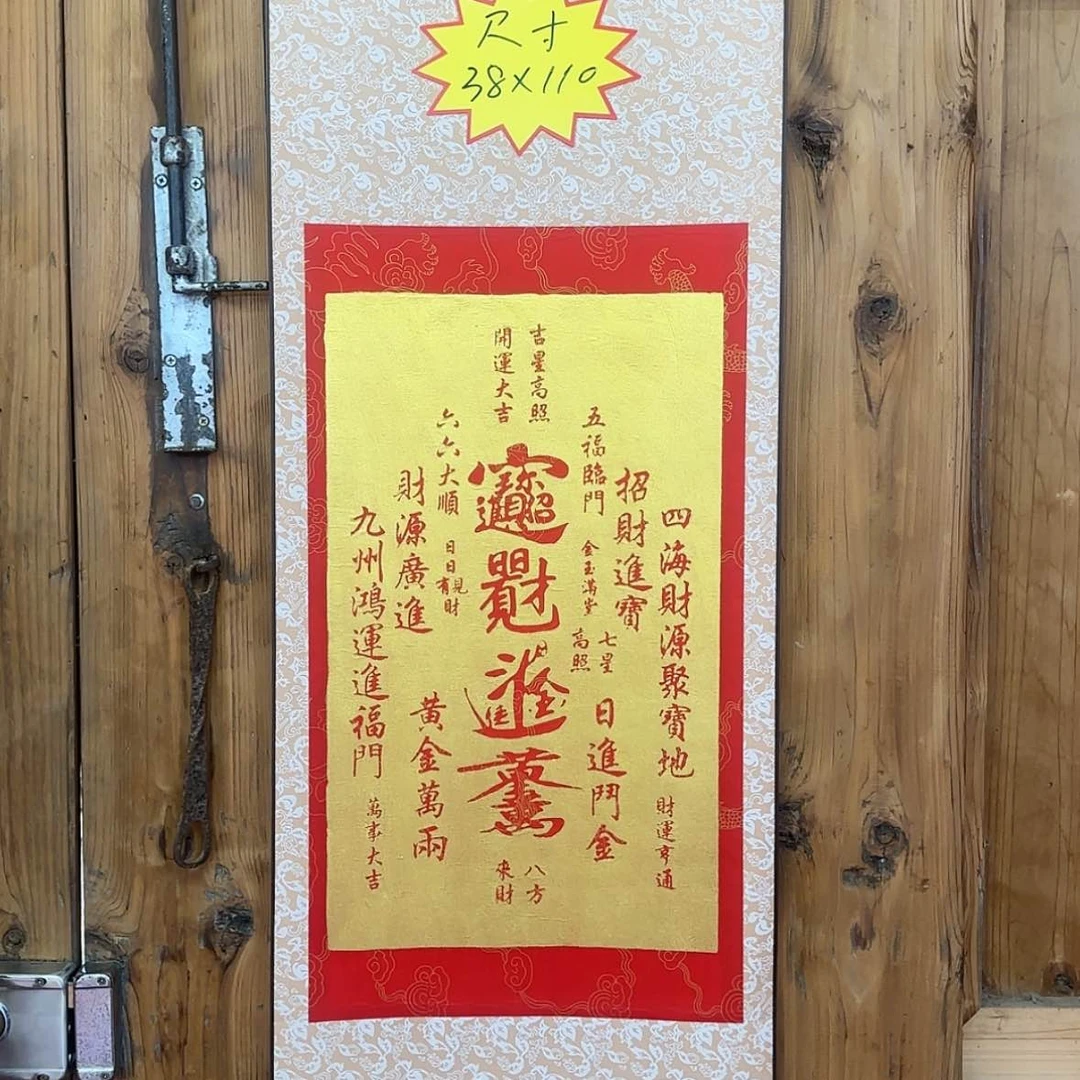 尺寸
38×110
吉星高照
開運大吉
四海財源聚寶地
財運亨通
招財進寶
五福臨門
金玉滿堂
七星
高照
日進鬥金
六六大順
日日有見財
財源廣進
黃金萬兩
九州鴻運進福門
萬事大吉
八方
來財